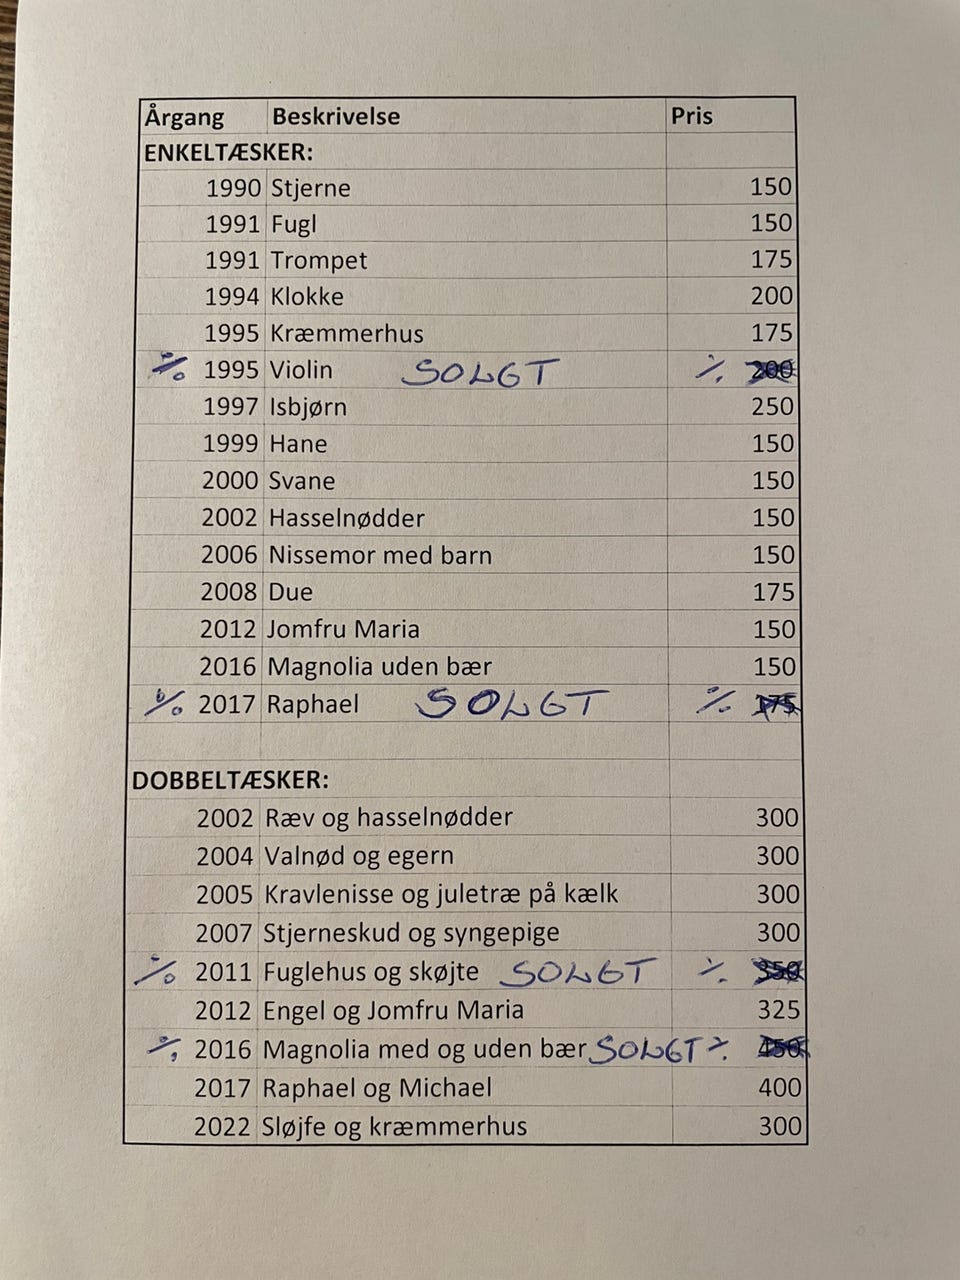 Årgang Beskrivelse Pris
ENKELTÆSKER:
1990 Stjerne 150
1991 Fugl 150
1991 Trompet 175
1994 Klokke 200
1995 Kræmmerhus 175
% 1995 Violin SOLGT % 200
1997 Isbjørn 250
1999 Hane 150
2000 Svane 150
2002 Hasselnødder 150
2006 Nissemor med barn 150
2008 Due 175
2012 Jomfru Maria 150
2016 Magnolia uden bær 150
% 2017 Raphael SOLGT % 175
DOBBELTÆSKER:
2002 Ræv og hasselnødder 300
2004 Valnød og egern 300
2005 Kravlenisse og juletræ på kælk 300
2007 Stjerneskud og syngepige 300
% 2011 Fuglehus og skøjte SOLGT % 350
2012 Engel og Jomfru Maria 325
% 2016 Magnolia med og uden bær SOLGT % 450
2017 Raphael og Michael 400
2022 Sløjfe og kræmmerhus 300